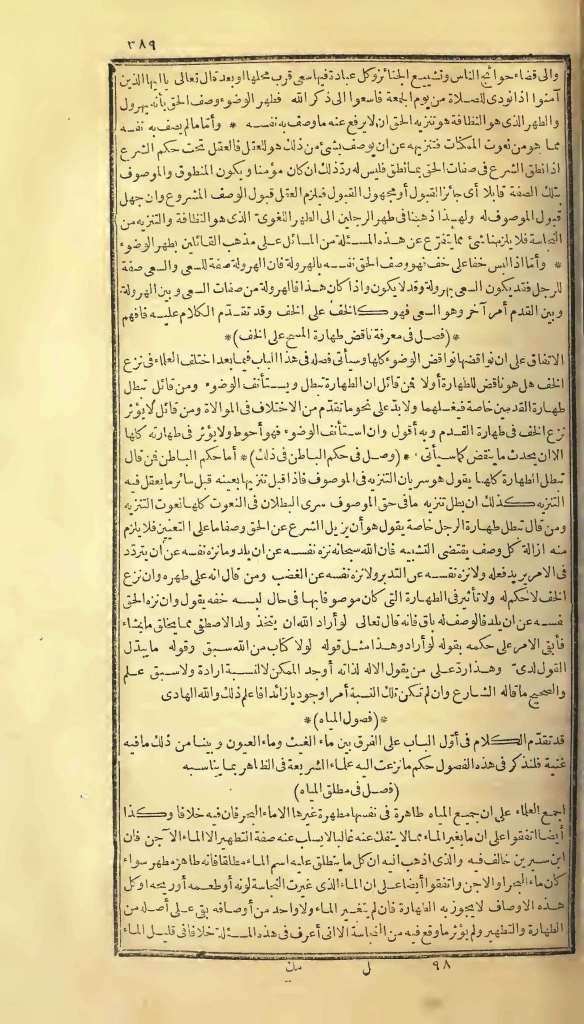 ٣٨٩
والى قضاء حوائج الناس وتشييع الجنائز وكل عبادة فيها سعى قرب محلها أو بعد قال تعالى يا أيها الذين
آمنوا اذا نودى للصلاة من يوم الجمعة فاسعوا الى ذكر الله فطهر الوضوء وصف الحق بأنه يهرول
والطهر الذى هو النظافة هو تنزيه الحق ان لا يرفع عنه ما وصف به نفسه * وأما ما لم يصف به نفسه
مما هو من نعوت الممكنات فتنزيهه عن ان يوصف بشئ من ذلك هو للعقل فالعقل تحت حكم الشرع
اذا نطق الشرع فى صفات الحق بما نطق فليس له رد ذلك ان كان مؤمنا ويكون المنطوق والموصوف
بتلك الصفة قابلا أى جائز القبول أو مجهول القبول فيلزم العقل قبول الوصف المشروع وان جهل
قبول الموصوف له ولهذا ذهبنا فى طهر الرجلين الى الطهر اللغوى الذى هو النظافة والتنزيه من
النجاسة فلا يلزمنا شئ مما يتفرع عن هذه المسئلة من المسائل على مذهب القائلين بطهر الوضوء
* وأما اذا لبس خفا على خف فهو وصف الحق نفسه بالهرولة فان الهرولة صفة للسعى والسعى صفة
للرجل فقد يكون السعى بهرولة وقد لا يكون واذا كان هذا فالهرولة من صفات السعى وبين الهرولة
وبين القدم أمر آخر وهو السعى فهو كالخف على الخف وقد تقدم الكلام عليه فافهم
*(فصل فى معرفة ناقض طهارة المسح على الخف)*
الاتفاق على ان نواقضها نواقض الوضوء كلها وسيأتى فصله فى هذا الباب فيما بعد اختلف العلماء فى نزع
الخف هل هو ناقض للطهارة أو لا فمن قائل ان الطهارة تبطل ويستأنف الوضوء ومن قائل تبطل
طهارة القدمين خاصة فيغسلهما ولا بد على نحو ما تقدم من الاختلاف فى الموالاة ومن قائل لا يؤثر
نزع الخف فى طهارة القدم وبه أقول وان استأنف الوضوء فهو أحوط ولا يؤثر فى طهارته كلها
الا ان يحدث ما ينقض كما سيأتى * (وصل فى حكم الباطن فى ذلك) * أما حكم الباطن فمن قال
تبطل الطهارة كلها يقول هو سريان التنزيه فى الموصوف فاذا قبل تنزيها بعينه قبل سائر ما يعقل فيه
التنزيه كذلك ان بطل تنزيه ما فى حق الموصوف سرى البطلان فى النعوت كلها نعوت التنزيه
ومن قال تبطل طهارة الرجل خاصة يقول هو أن يزيل الشرع عن الحق وصفا ما على التعيين فلا يلزم
منه ازالة كل وصف يقتضى التشبيه فان الله سبحانه نزه نفسه عن ان يلد وما نزه نفسه عن أن يتردد
فى الامر يريد فعله ولا نزه نفسه عن التدبر ولا نزه نفسه عن الغضب ومن قال انه على طهره وان نزع
الخف لا حكم له ولا تأثير فى الطهارة التى كان موصوفا بها فى حال لبسه خفه يقول وان نزه الحق
نفسه عن ان يلد فالوصف له باق فانه قال تعالى لو أراد الله ان يتخذ ولدا لاصطفى مما يخلق ما يشاء
فأبقى الامر على حكمه بقوله لو أراد وهذا مثل قوله لولا كتاب من الله سبق وقوله ما يبدل
القول لدى وهذا رد على من يقول الاله لذاته أوجد الممكن لا لنسبة ارادة ولا سبق علم
والصحيح ما قاله الشارع وان لم تكن تلك النسبة أمرا وجوديا زائدا فاعلم ذلك والله الهادى
*(فصول المياه)*
قد تقدم الكلام فى أول الباب على الفرق بين ماء الغيث وماء العيون وبينا من ذلك ما فيه
غنية فلنذكر فى هذه الفصول حكم ما نزعت اليه علماء الشريعة فى الظاهر بما يناسبه
(فصل فى مطلق المياه)
اجمع العلماء على ان جميع المياه طاهرة فى نفسها مطهرة غيرها الا ماء البحر فان فيه خلافا وكذا
أيضا اتفقوا على ان ما يغير الماء مما لا ينفك عنه غالبا لا يسلب عنه صفة التطهير الا الماء الآجن فان
ابن سيرين خالف فيه والذى اذهب اليه ان كل ما ينطلق عليه اسم الماء مطلقا فانه طاهر مطهر سواء
كان ماء البحر أو الآجن واتفقوا أيضا على ان الماء الذى غيرت النجاسة لونه أو طعمه أو ريحه أو كل
هذه الاوصاف لا يجوز به الطهارة فان لم يتغير الماء ولا واحد من أوصافه بقى على أصله من
الطهارة والتطهير ولم يؤثر ما وقع فيه من النجاسة الا انى أعرف فى هذه المسئلة خلافا فى قليل الماء
٩٨ ل مك